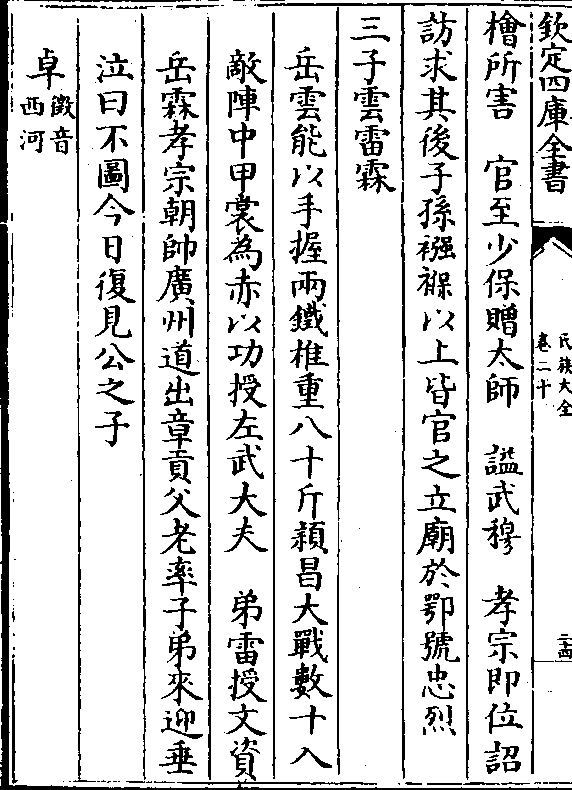 欽定四庫全書
氏族大全
卷二十
二十四
檜所害　官至少保贈太師　諡武穆　孝宗即位詔
訪求其後子孫襁褓以上皆官之立廟於鄂號忠烈
三子雲雷霖
岳雲能以手握兩鐵椎重八十斤潁昌大戰數十入
敵陣中甲裳為赤以功授左武大夫　弟雷授文資
岳霖孝宗朝帥廣州道出章貢父老率子弟來迎垂
泣曰不圖今日復見公之子
卓
徵音
西河